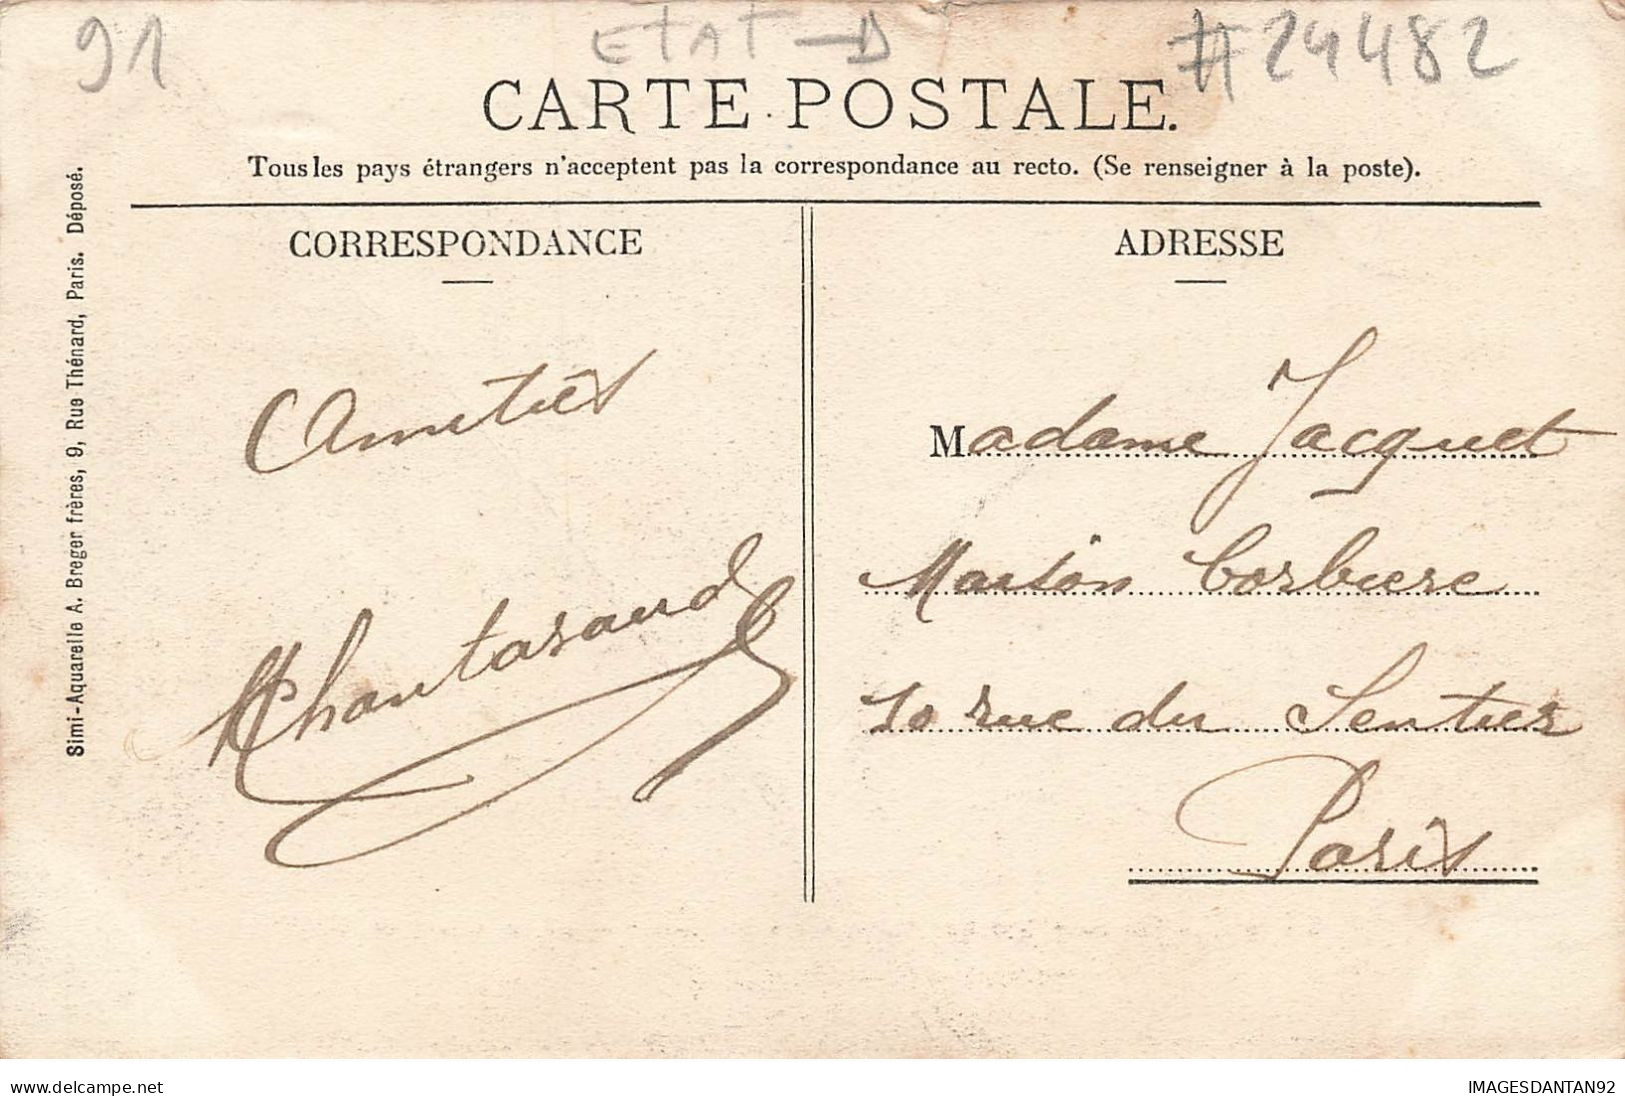 91
ETAT - D
#24482
CARTE POSTALE.
Tous les pays étrangers n'acceptent pas la correspondance au recto. (Se renseigner à la poste).
Simi-Aquarelle A. Breger frères, 9, Rue Thénard, Paris. Déposé.
CORRESPONDANCE
Amitiés
ADRESSE
Madame Jacquet
Maison Corbiere
10 rue du Sentier
Paris
www.delcampe.net
IMAGESDANTAN92